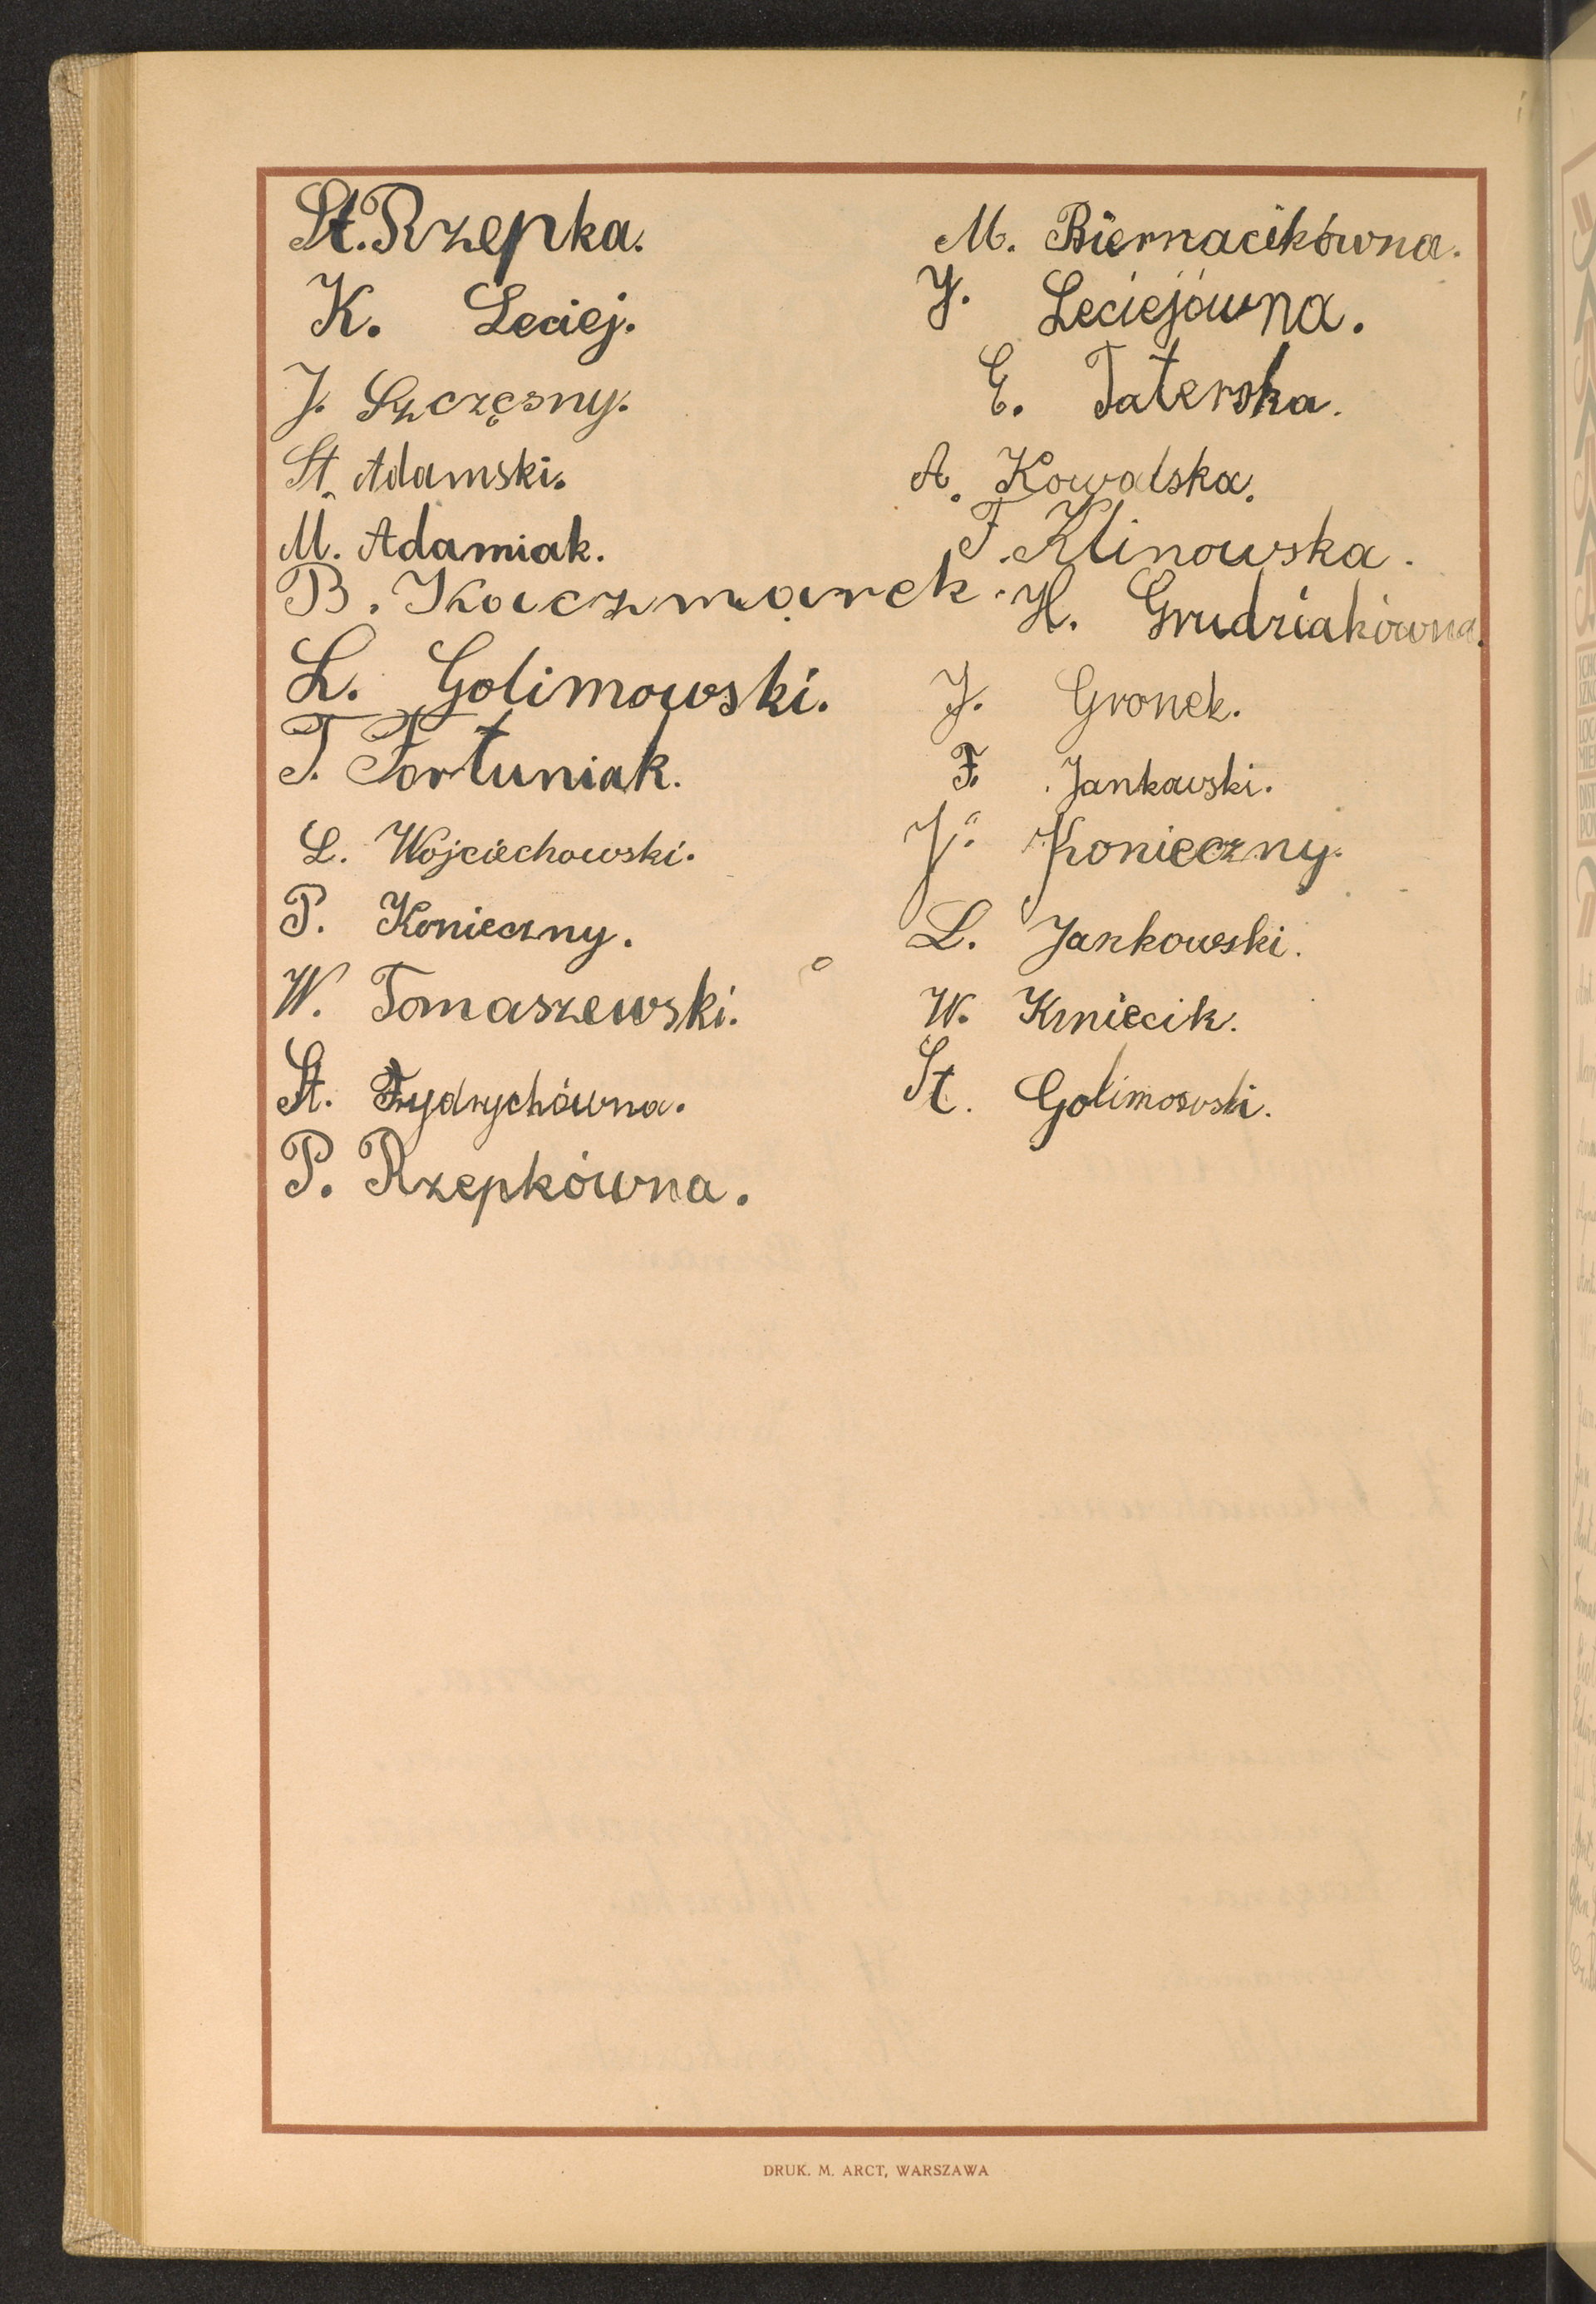 St. Rzepka.
K. Leciej.
J. Szczęsny.
St. Adamski.
M. Adamiak.
B. Kaczmarek.
L. Golimowski.
T. Fortuniak.
L. Wojciechowski.
P. Konieczny.
W. Tomaszewski.
St. Frydrychówna.
P. Rzepkówna.
M. Biernacikówna.
J. Leciejówna.
E. Taterska.
A. Kowalska.
F. Klinowska.
H. Grudziakówna.
J. Gronek.
F. Jankowski.
J. Konieczny.
L. Jankowski.
W. Kmiecik.
St. Golimowski.
DRUK. M. ARCT, WARSZAWA